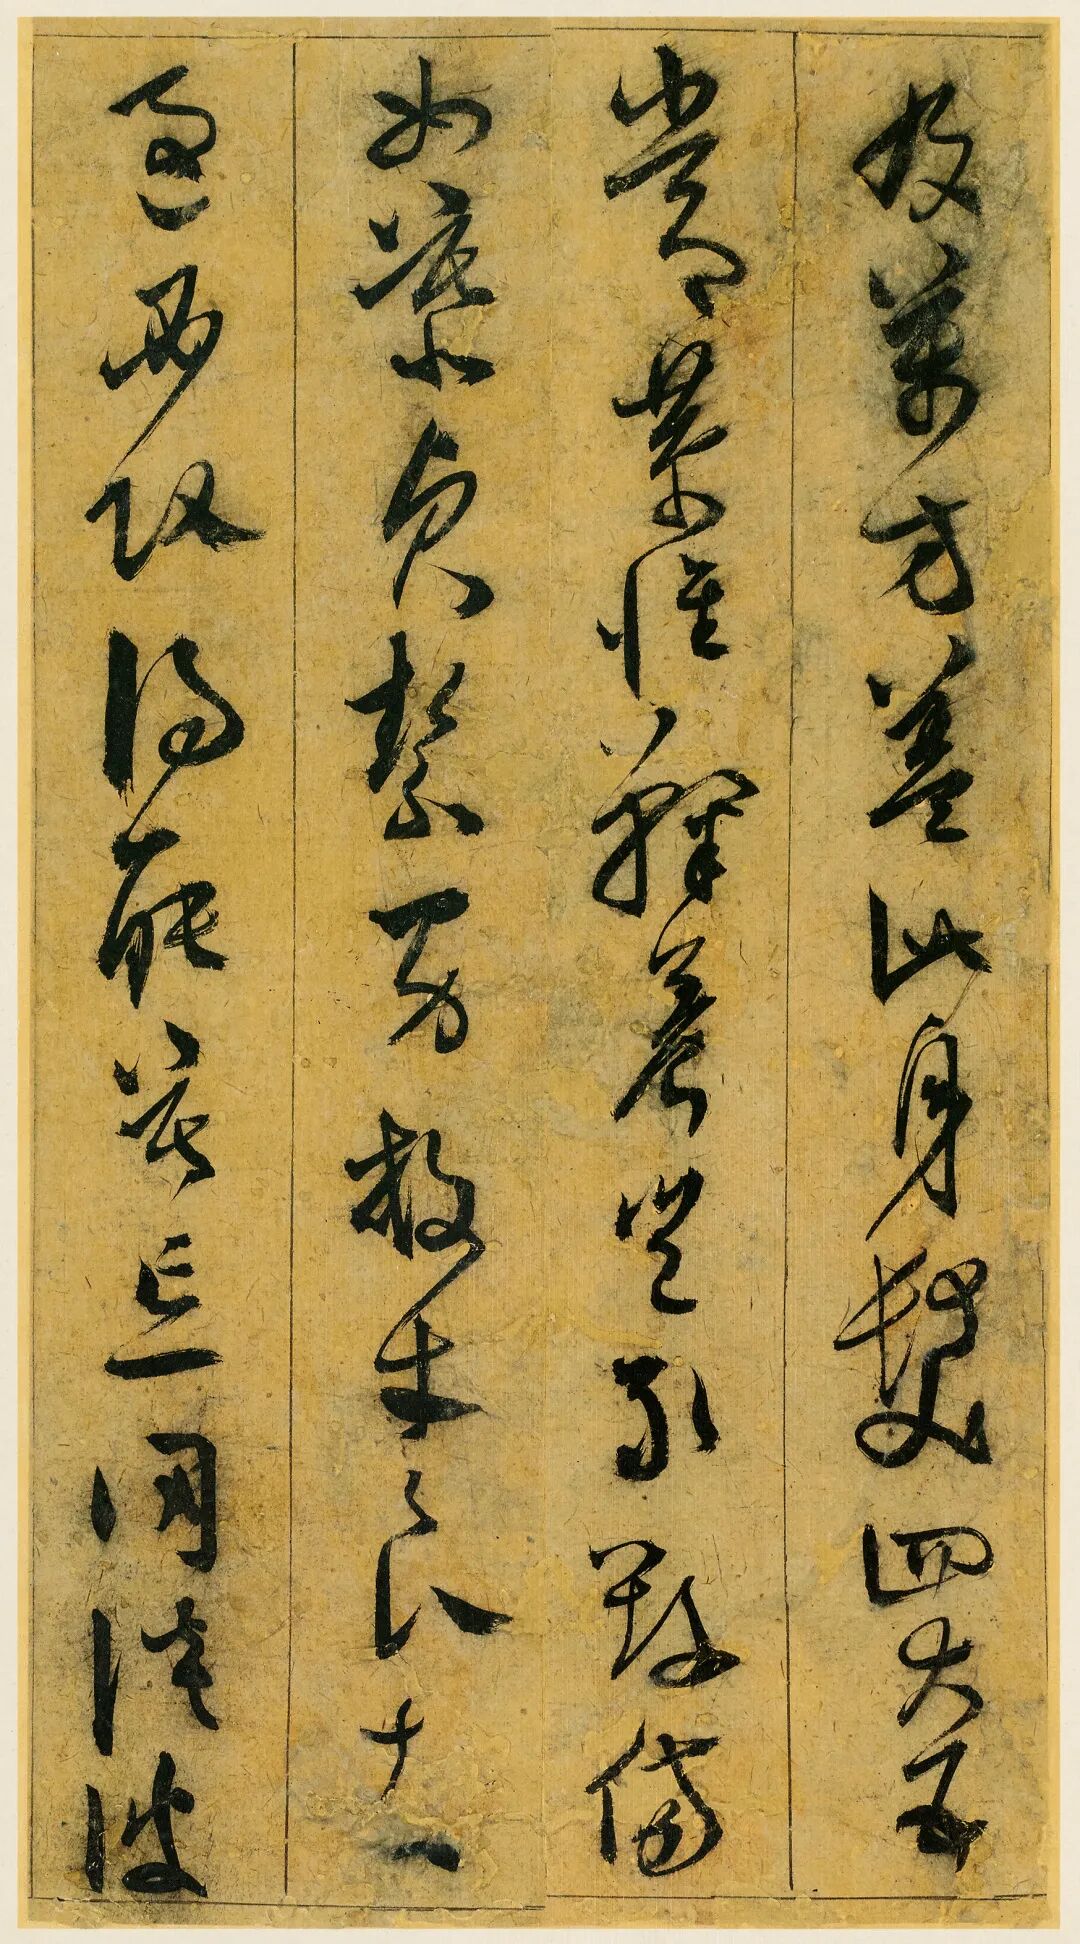 及萬方蓋此身髮四大五
常恭惟鞠養豈敢毀傷
女慕貞絜男效才良知
過必改得能莫忘罔談彼